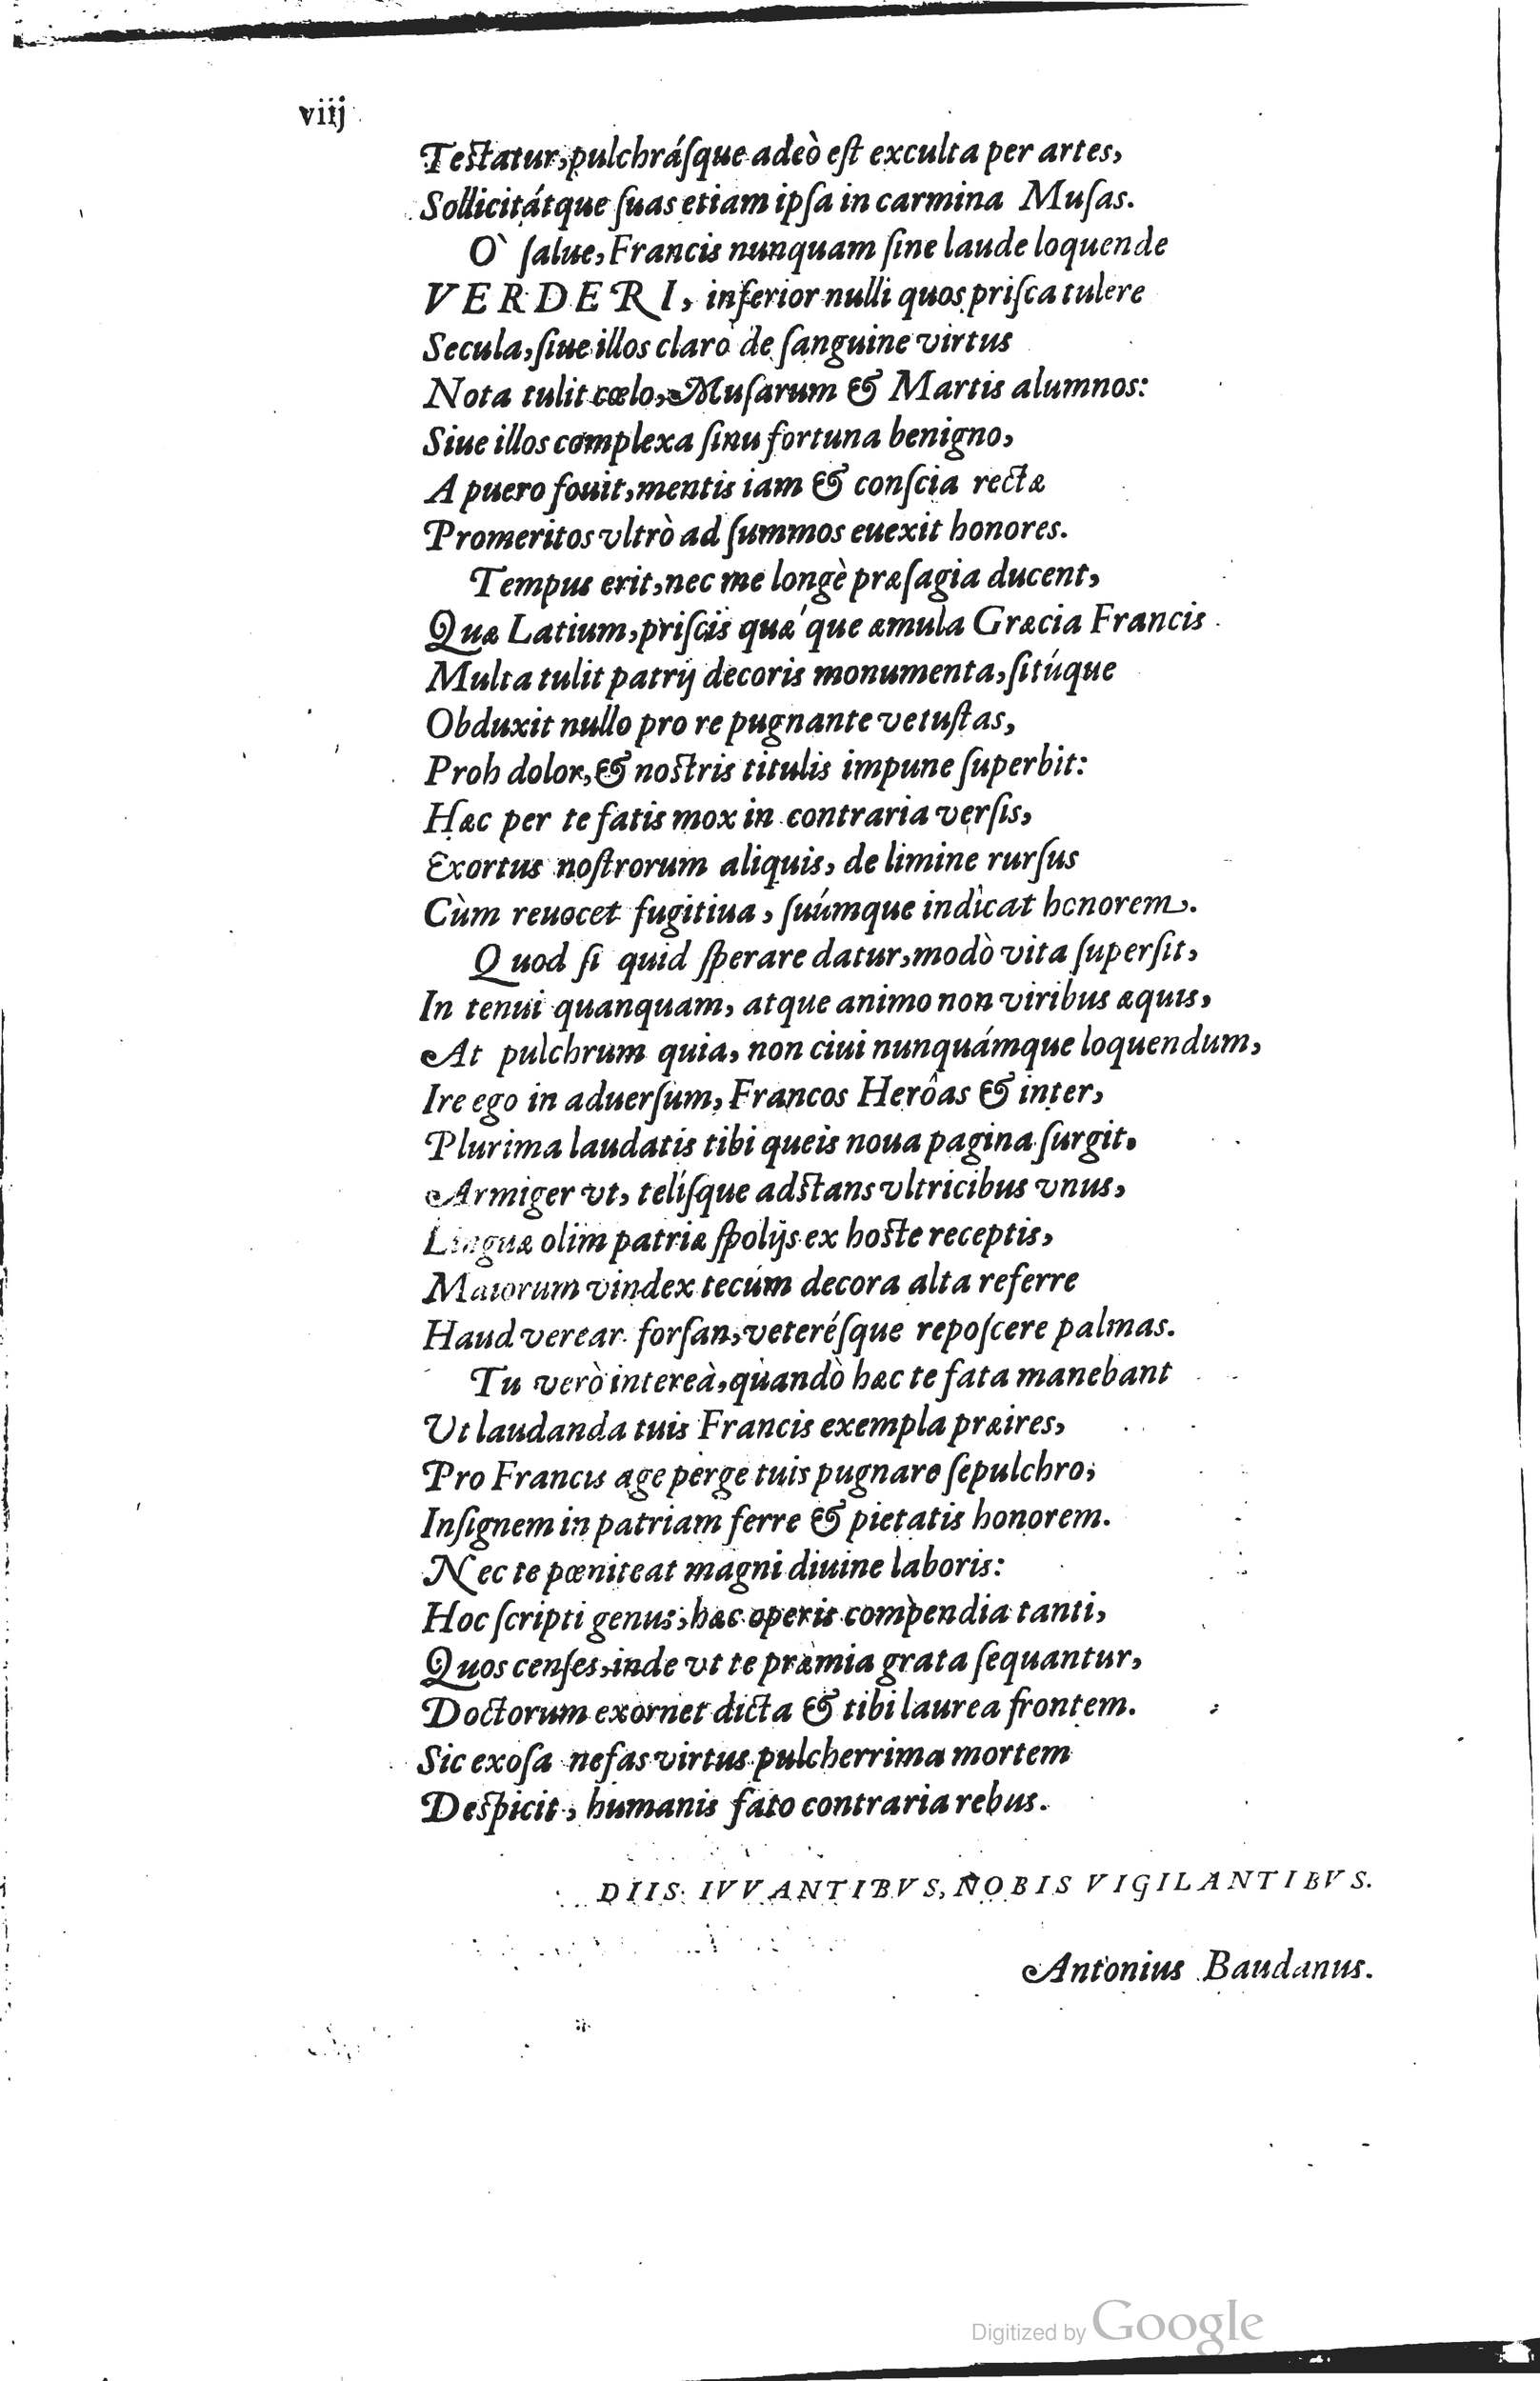 viij
Testatur, pulchrásque adeò est exculta per artes,
Sollicitátque ſuas etiam ipſa in carmina Muſas.
O` ſalue, Francis nunquam ſine laude loquende
VERDERI, inferior nulli quos priſca tulere
Secula, ſiue illos claro de ſanguine virtus
Nota tulit cœlo, Muſarum & Martis alumnos:
Siue illos complexa ſinu fortuna benigno,
A puero fouit, mentis iam & conſcia rectæ
Promeritos vltrò ad ſummos euexit honores.
Tempus erit, nec me longè præſagia ducent,
Quæ Latium, priſcis quæ'que æmula Græcia Francis
Multa tulit patrij decoris monumenta, ſitúque
Obduxit nullo pro re pugnante vetuſtas,
Proh dolor, & nostris titulis impune ſuperbit:
Hæc per te fatis mox in contraria verſis,
Exortus noſtrorum aliquis, de limine rurſus
Cùm reuocet fugitiua, ſuúmque indicat honorem.
Quod ſi quid ſperare datur, modò vita ſuperſit,
In tenui quanquam, atque animo non viribus æquis,
At pulchrum quia, non ciui nunquámque loquendum,
Ire ego in aduerſum, Francos Herôas & inter,
Plurima laudatis tibi queis noua pagina ſurgit.
Armiger vt, telíſque adstans vltricibus vnus,
Linguæ olim patriæ ſpolijs ex hoste receptis,
Maiorum vindex tecúm decora alta referre
Haud verear forſan, veteréſque repoſcere palmas.
Tu verò intereà, quandò hæc te fata manebant
Ut laudanda tuis Francis exempla præires,
Pro Francis age perge tuis pugnare ſepulchro,
Inſignem in patriam ferre & pietatis honorem.
Nec te pœniteat magni diuine laboris:
Hoc ſcripti genus, hæc operis compendia tanti,
Quos cenſes, inde vt te præmia grata ſequantur,
Doctorum exornet dicta & tibi laurea frontem.
Sic exoſa nefas virtus pulcherrima mortem
Despicit, humanis fato contraria rebus.
DIIS IVVANTIBVS, NOBIS VIGILANTIBVS.
Antonius Baudanus.
Digitized by Google